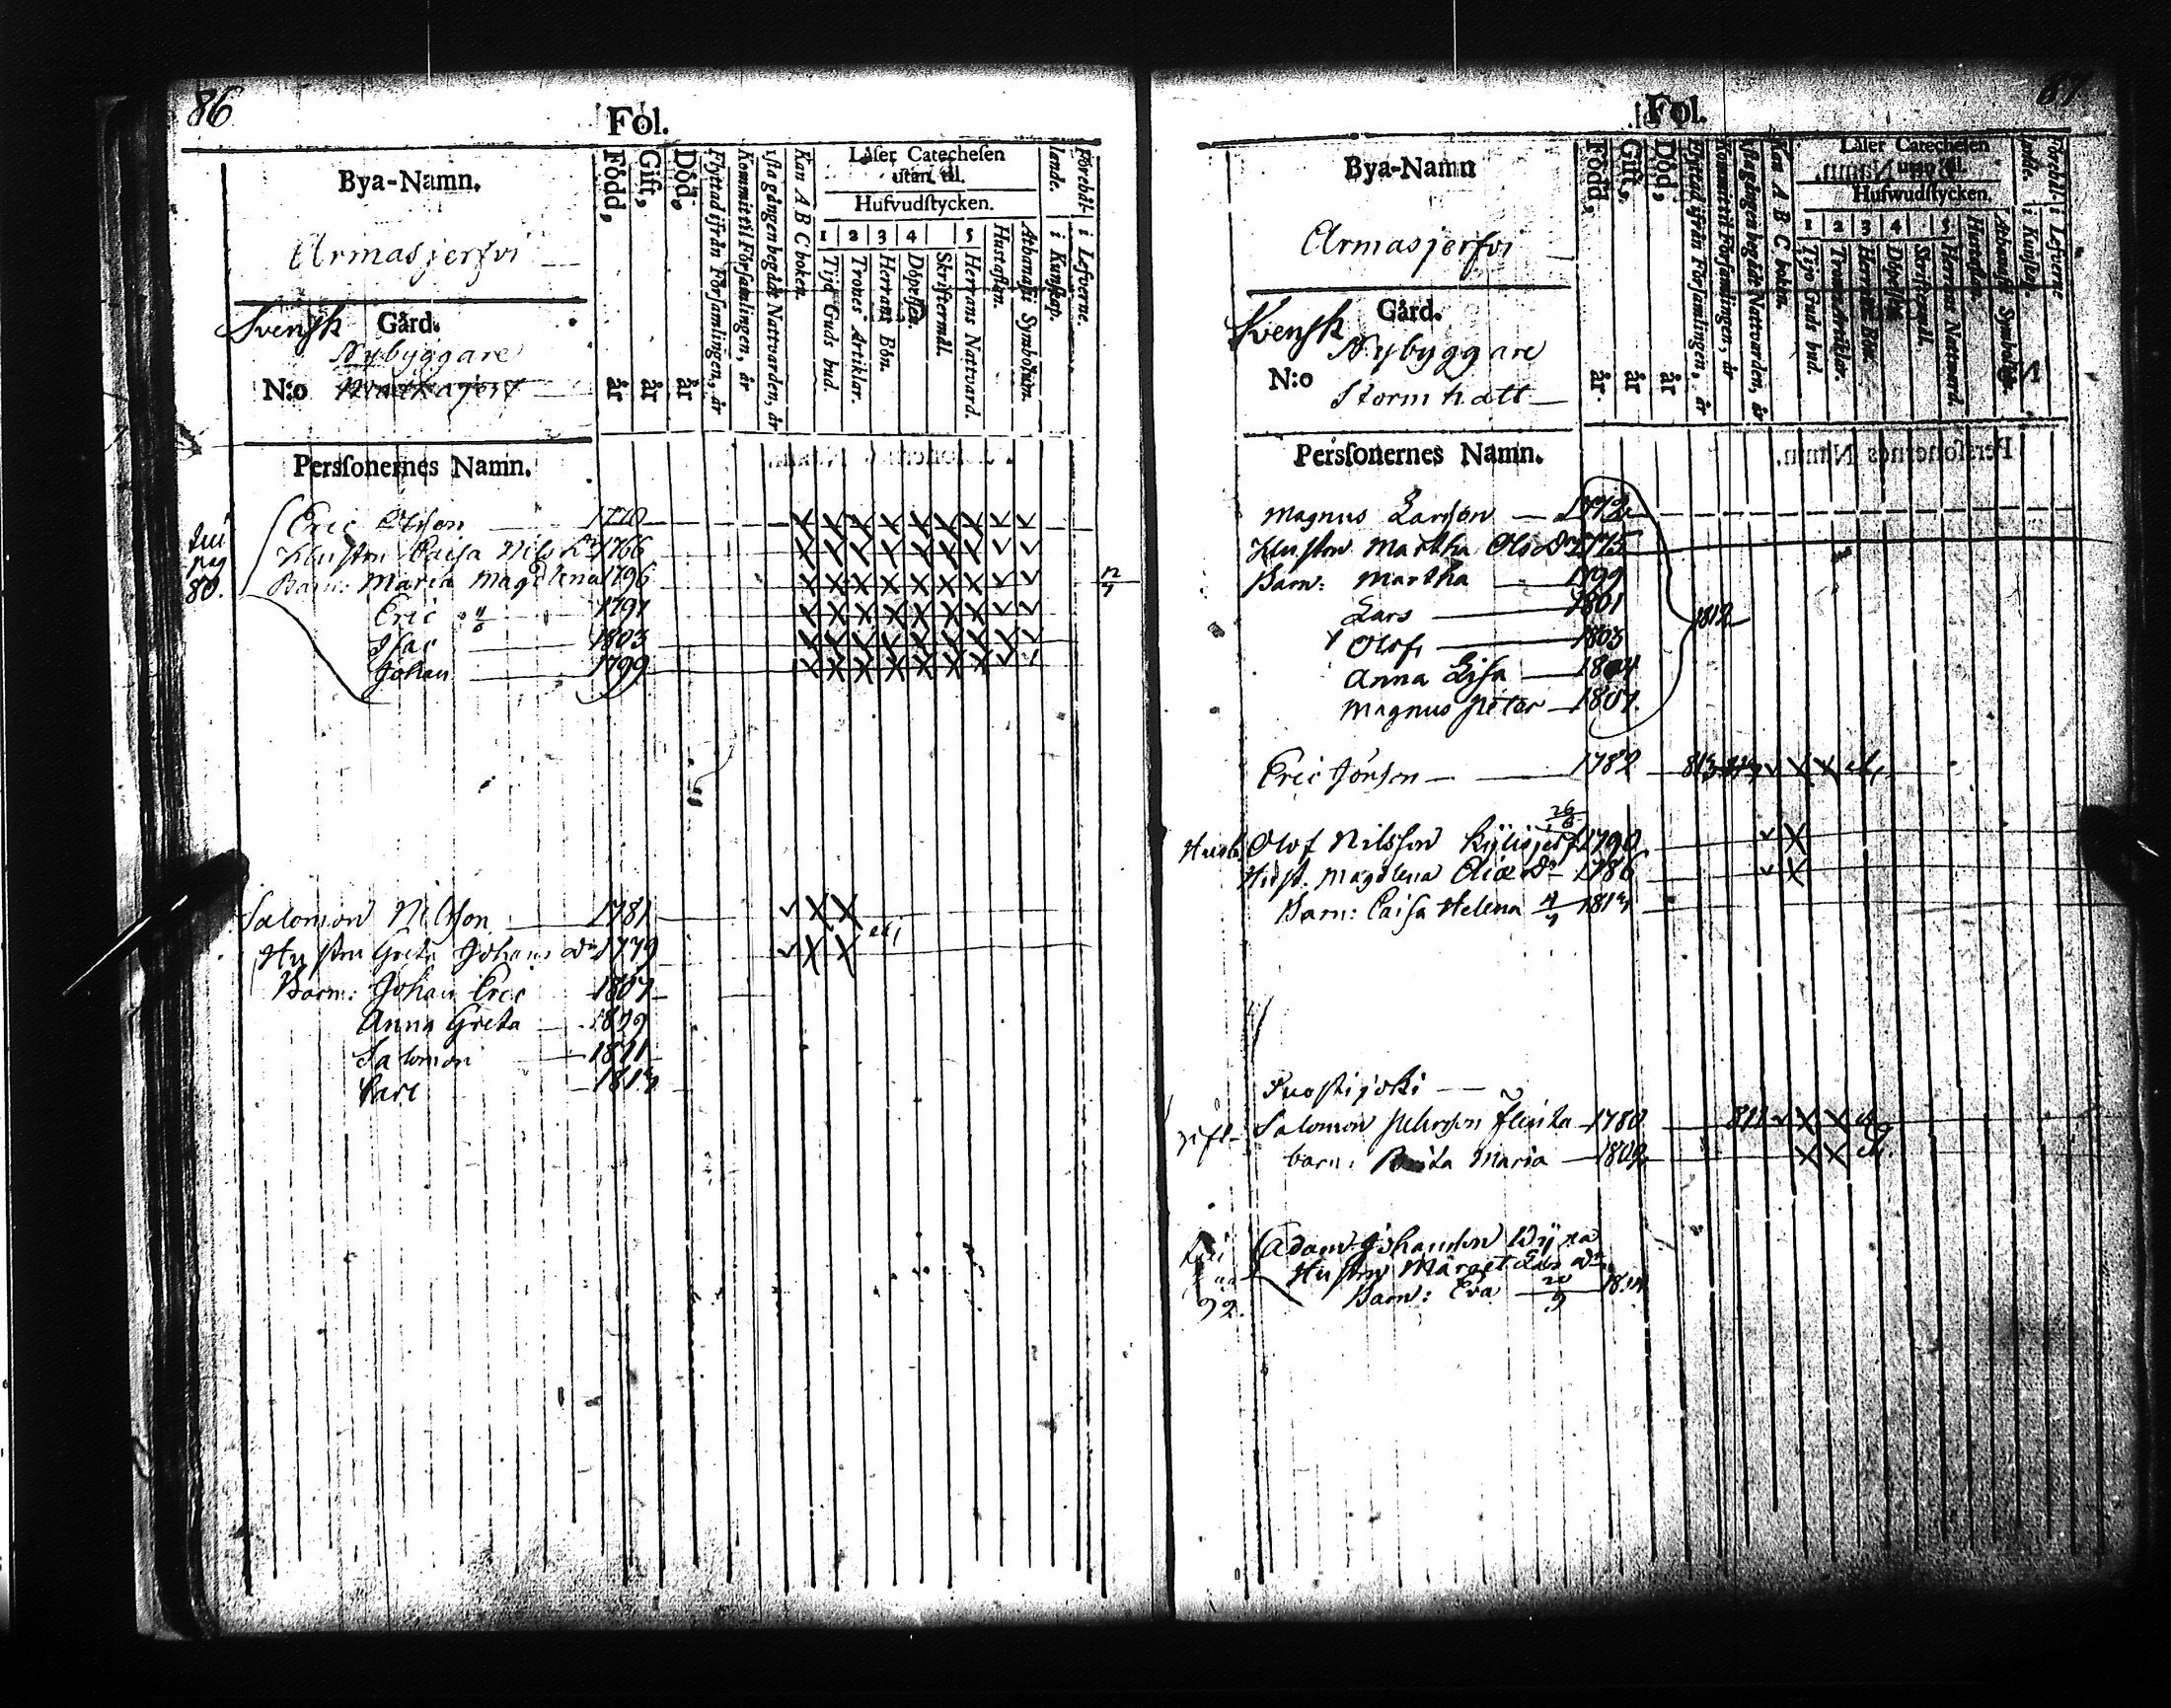 86
Fol.
Bya-Namn.
Armasjerfvi
Svensk Gård.
Nybyggare
N:o
Född, år
Gift, år
Död, år
Flyttad ifrån Församlingen, år
Kommit til Församlingen, år
sista gången begådt Nattvarden, år
Kan A B C boken.
Läser Catechesen
utan til.
Hufvudstycken.
1 2 3 4 5
Tijo Guds bud.
Trones Artiklar.
Herrans Bön.
Döpelsen.
Skriftermål.
Herrans Nattvard.
Hustaflan.
Athanasii Symbolum.
Förehållande. i Kunskap.
i Lefverne.
Personernes Namn.
Eric Olsson 1770
Hustru Caisa Nils Dr 1766
Barn: Maria Magdlena 1796
Eric 1791
Isac 1803
Johan 1799
80.
Salomon Nilsson 1781
Hustru Greta Johans Dr 1779
Barn: Johan Eric 1807
Anna Greta 1809
Salomon 1811
Carl 181
87
Fol.
Bya-Namn
Armasjerfvi
Svensk Gård.
Nybyggare
N:o Stormhatt
Född, år.
Gift, år
Död, år
Flyttad ifrån Församlingen, år
Kommit til Församlingen, år
sista gången begådt Nattvarden, år
Kan A B C boken.
Läser Catechesen
utan til.
Hufwudstycken.
1 2 3 4 5
Tijo Guds bud.
Trones Artiklar.
Herrans Bön.
Döpelsen.
Skriftermål.
Herrans Nattward.
Hustaflan.
Athanasii Symbolum.
Förehållande. i Kunskap.
i Lefverne
Personernes Namn.
Magnus Larsson 1772
Hustru Martha Ols Dr 1775
Barn: Martha 1799
Lars 1801
Olof 1803
Anna Lisa 1804
Magnus Peter 1807
1812
Eric Jönsson 1782 813
26/6
Olof Nilsson Kylisjerf 1790
Hust. Magdlena Eliæ Dr 1786
Barn: Caisa Helena 181
Suostijoki
Salomon Flinta 1780 811
barn: Brita Maria 1809
Adam Johansson
Hustru Marget Lars Dr
Barn: Eva 20/9
92.